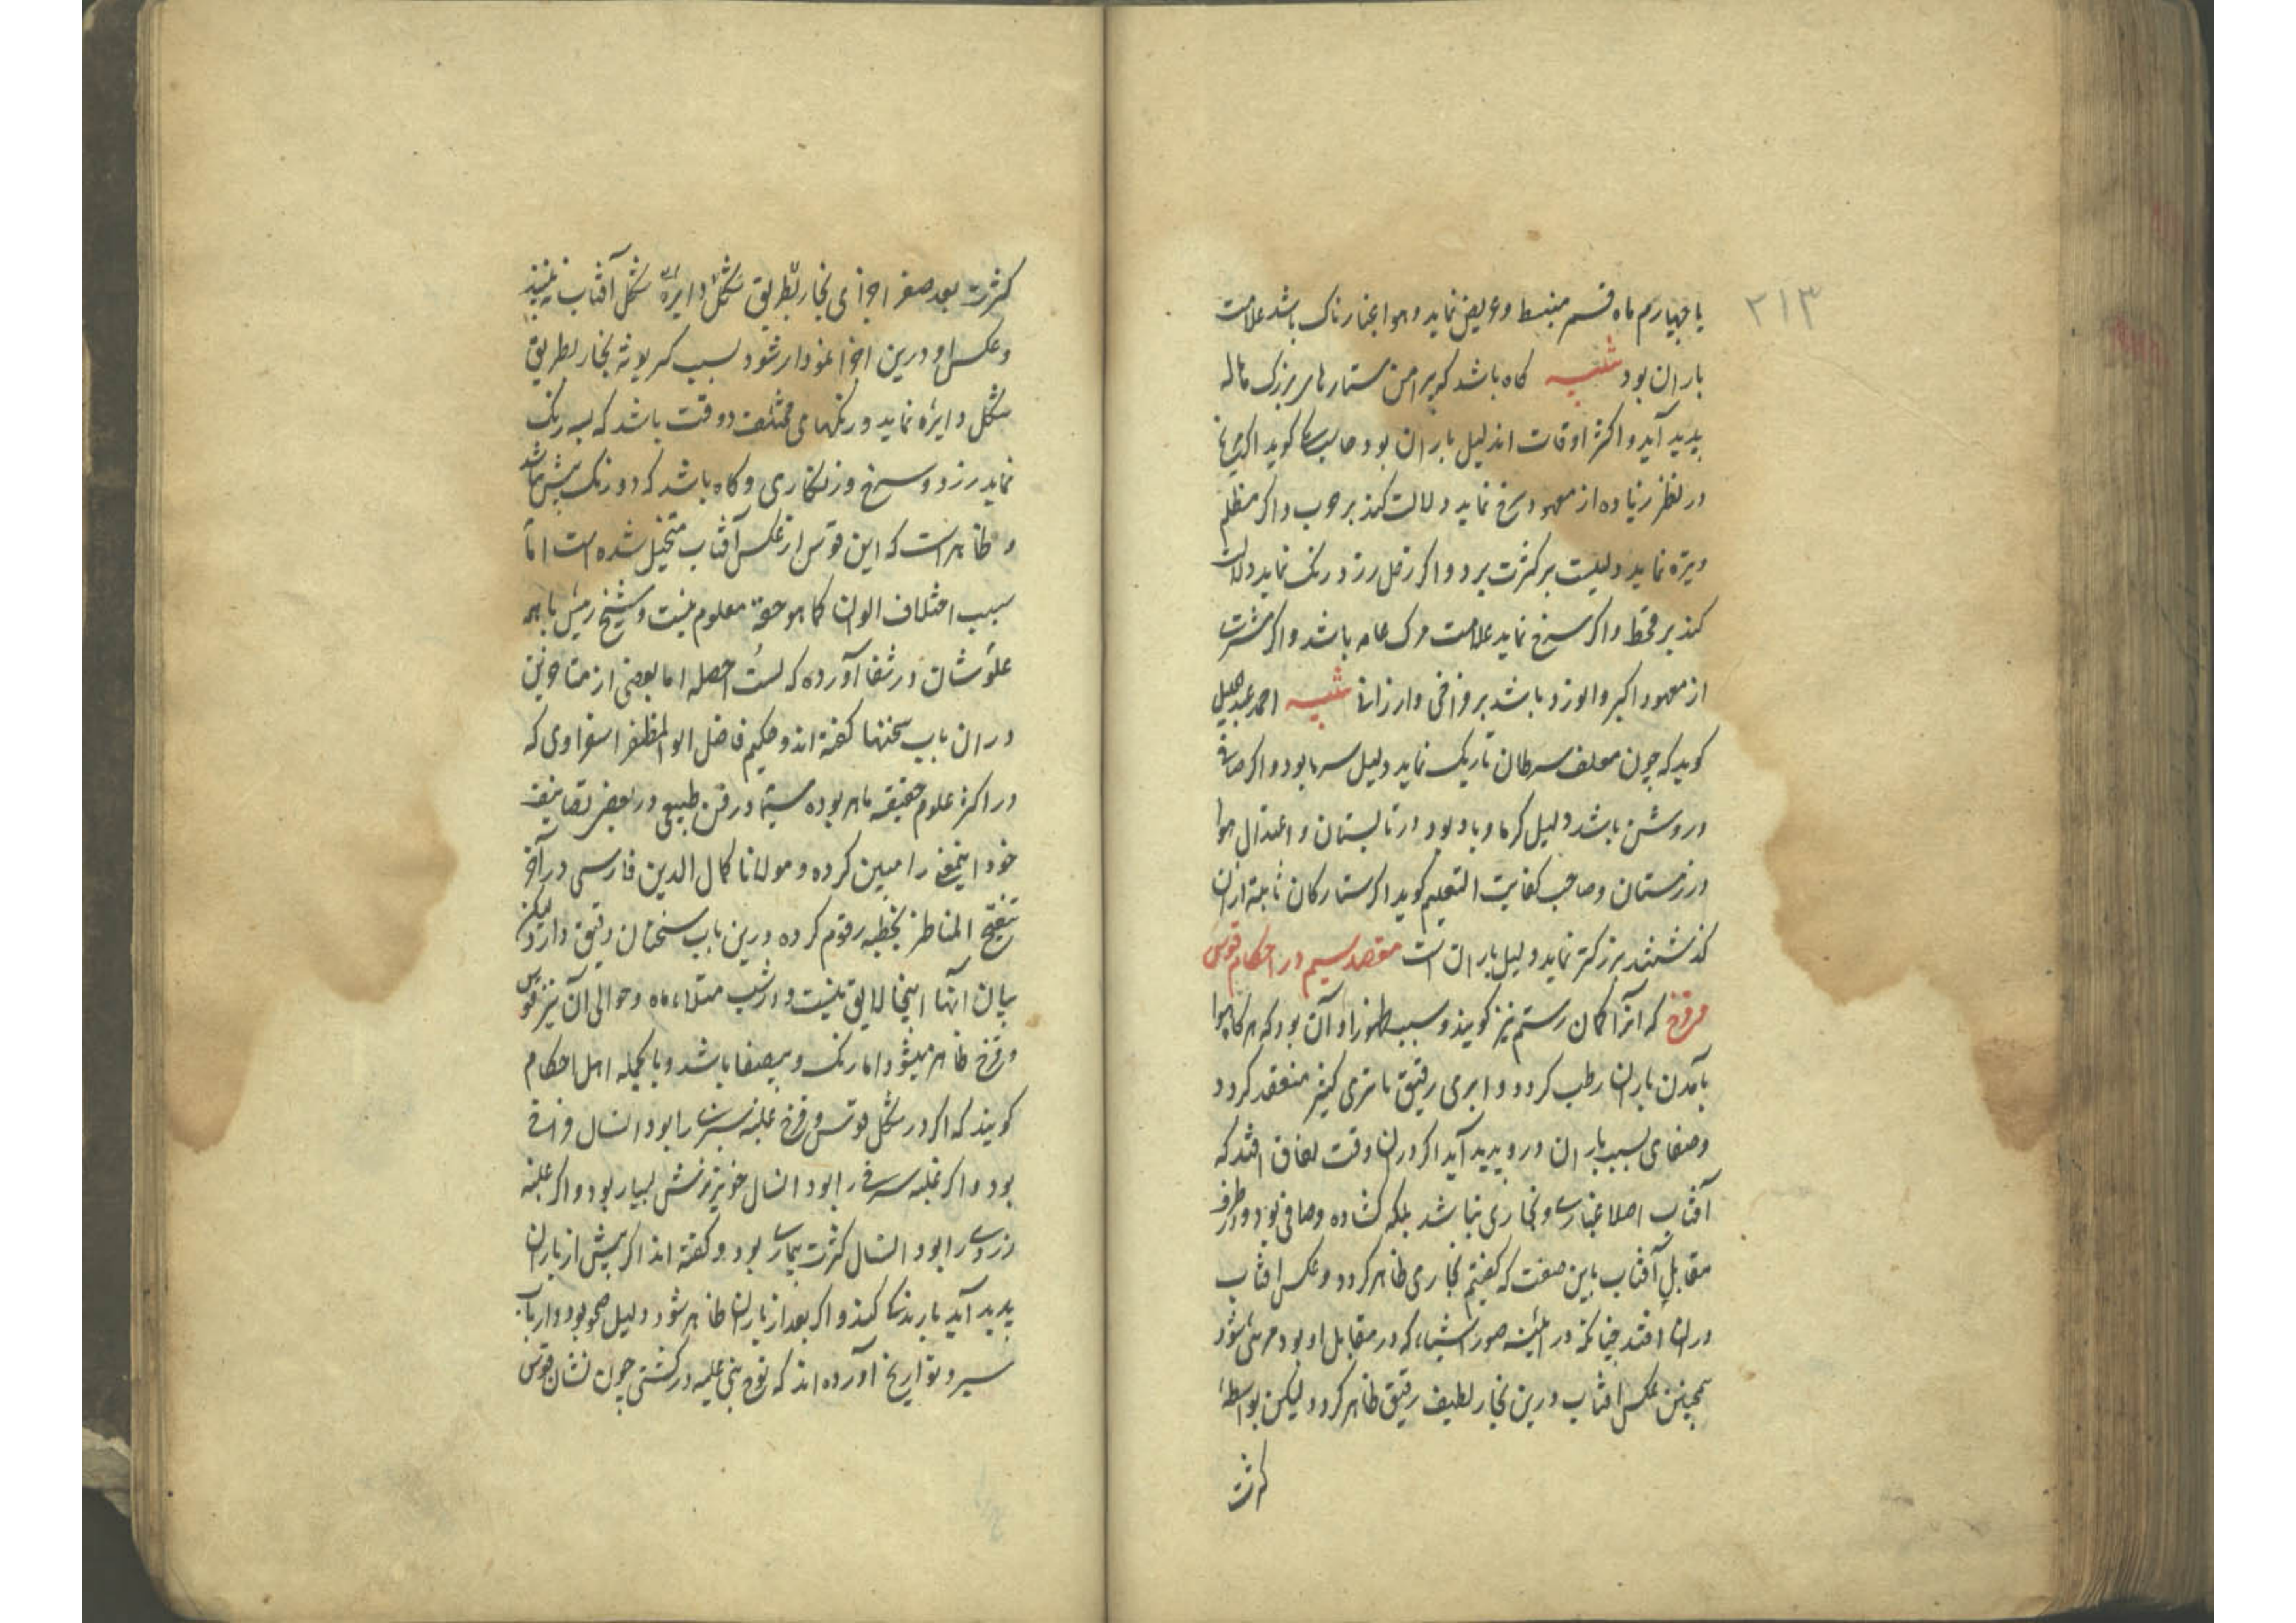 ۲۱۳
یا چهارم ماه قسم منبسط و عریض نماید و هوا غبارناک باشد علامت
باران بود تنبیه کاه باشد که پیرامن ستارهای بزرک هاله
پدید آید و اکثر اوقات اندلیل باران بود کوید اکر مریخ
در نظر زیاده از معهود سرخ نماید دلالت کند بر حرب و اکر مظلم
و تیره نماید دلیلست بر کثرت برد و اکر زحل زرد رنک نماید دلالت
کند بر قحط و اکر سرخ نماید علامت مرک عامه باشد و اکر مشتری
از معهود اکبر و انور بود باشد بر فراخی و ارزانی تنبیه احمد عبدالجلیل
کوید که چون معلف سرطان تاریک نماید دلیل سرما بود و اکر صافی
و روشن باشد دلیل کرما و باد بود در تابستان و اعتدال هوا
در زمستان و صاحب کفایت التعلیم کوید اکر ستارکان ثابته ازان
که هستند بزرکتر نماید دلیل باران است مقصد سیم در احکام قوس
قزح که آنرا کمان رستم نیز کویند و سبب ظهور او آن بود که هر کاه هوا
بآمدن باران رطب کردد و ابری رقیق با تری کثیر منعقد کردد
و صفای بسبب باران درو پدید آید اکر دران وقت اتفاق افتد که
آفتاب اصلا غباری و بخاری نباشد بلکه کشاده و صافی بود و در طرف
مقابل آفتاب باین صفت که کفتیم بخاری ظاهر کردد و عکس افتاب
دران افتد چنانکه در آئینه صور اشیاء که در مقابل او بود مرئی شود
همچنین عکس افتاب درین بخار لطیف رقیق ظاهر کردد لیکن بواسطهٔ
کثرت
کثرت بعد صغر اجزای بخار بطریق شکل دایره شکل آفتاب
و عکس او درین اجزا نمودار شود بسبب کریوتهٔ بخار بطریق
شکل دایره نماید و رنکهای مختلف و وقت باشد که سه رنک
نماید زرد و سرخ و زنکاری و کاه باشد که دو رنک بیش نباشد
و ظاهر است که این قوس از عکس آفتاب متخیل شده است اما
سبب اختلاف الوان کما هو حقه معلوم نیست و شیخ رئیس با همه
علو شان در شفا آورده که لست احصله اما بعضی از متاخرین
دران باب سخنها کفته اند و حکیم فاضل ابو المظفر اسفزاری که
در اکثر علوم حقیقه ماهر بوده سیما در فن طبیعی در بعضی تصانیف
خود اینمعنی را مبین کرده و مولانا کمال الدین فارسی در آخر
تنقیح المناظر بخطبه رقوم کرده درین باب سخنان دقیق دارد لیکن
بیان آنها اینجا لایق نیست و در شب مثلاء ماه و حوالی آن نیز قوس
و قزح ظاهر میشود اما رنک و بیصفا باشد و بالجمله اهل احکام
کویند که اکر در شکل قوس و قزح غلبه سبزی را بود انسال فراخی
بود و اکر غلبه سرخی را بود انسال خونریزش بسیار بود و اکر غلبه
زردی را بود انسال کثرت بیماری بود و کفته اند اکر پیش از باران
پدید آید بارندکی کند و اکر بعد از باران ظاهر شود دلیل صحو بود و ارباب
سیر و تواریخ آورده اند که نوح نبی علیه در کشتی چون نشان قوس